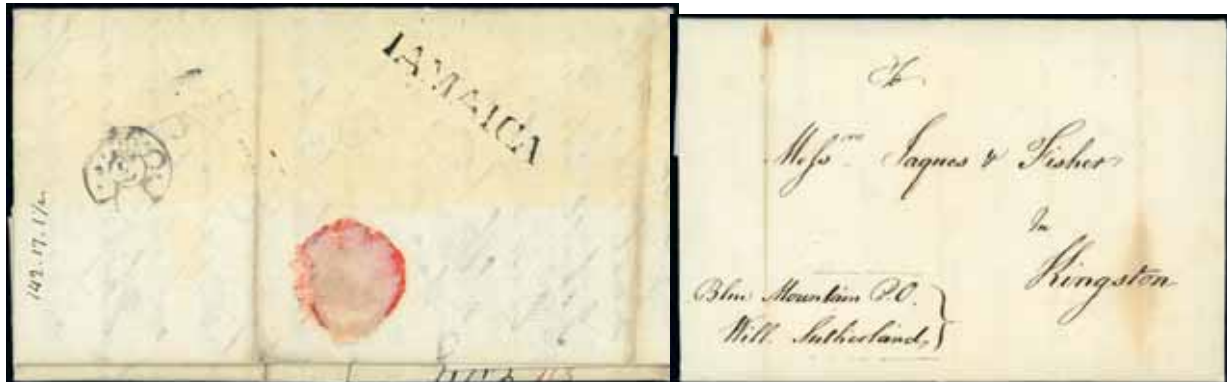 JAMAICA
142.17.1½
To
Messrs Jaques & Fisher
In
Kingston
Blue Mountain P.O.
Will. Sutherland,